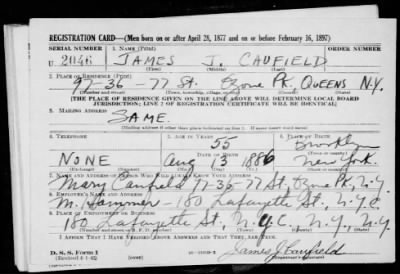 REGISTRATION CARD—(Men born on or after April 28, 1877 and on or before February 16, 1897)
SERIAL NUMBER 1. NAME (Print)
U 2046 JAMES J. CAUFIELD
(First) (Middle) (Last)
2. PLACE OF RESIDENCE (Print)
97-36 77 St. Ozone Pk. QUEENS N.Y.
(Number and street) (Town, township, village, or city) (County) (State)
[THE PLACE OF RESIDENCE GIVEN ON THE LINE ABOVE WILL DETERMINE LOCAL BOARD
JURISDICTION; LINE 2 OF REGISTRATION CERTIFICATE WILL BE IDENTICAL]
3. MAILING ADDRESS
SAME.
[Mailing address if other than place indicated on line 2. If same insert word same]
4. TELEPHONE 5. AGE IN YEARS 6. PLACE OF BIRTH
55 Brooklyn
DATE OF BIRTH (Town or county)
NONE Aug 13 1886 New York.
(Exchange) (Number) (Mo.) (Day) (Yr.) (State or country)
7. NAME AND ADDRESS OF PERSON WHO WILL ALWAYS KNOW YOUR ADDRESS
Mary Caufield 97-36-77 St. Ozone Pk, N.Y.
8. EMPLOYER'S NAME AND ADDRESS
M. Hammer - 180 Lafayette St, N.Y.C
9. PLACE OF EMPLOYMENT OR BUSINESS
180 Lafayette St, N.Y.C. N.Y., N.Y.
(Number and street or R. F. D. number) (Town) (County) (State)
I AFFIRM THAT I HAVE VERIFIED ABOVE ANSWERS AND THAT THEY ARE TRUE.
D. S. S. Form 1
(Revised 4-1-42) James J Caufield
(Registrant's signature)